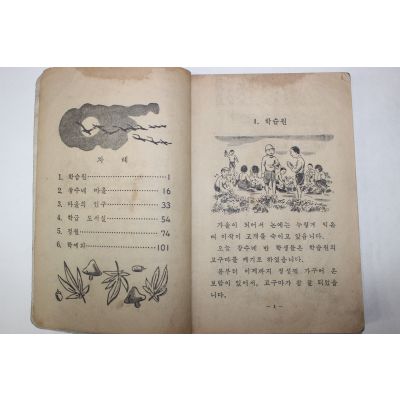 차 례
1. 학습원 1
2. 장수네 마을 16
3. 마을의 인구 33
4. 학급 도서실 54
5. 정월 74
6. 101
1. 학습원
가을이 되어서 논에는 누렇게 익은
벼 이삭이 고개를 숙이고 있읍니다.
오늘 장수네 반 학생들은 학습원의
고구마를 캐기로 하였읍니다.
봄부터 이제까지 정성껏 가꾸어 온
보람이 있어서, 고구마가 참 잘 되었읍
니다.
— 1 —